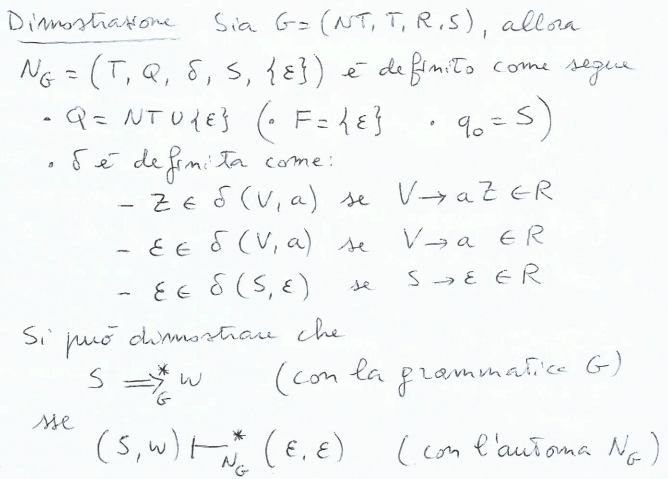 Dimostrazione Sia G=(NT, T, R, S), allora
N_G = (T, Q, δ, S, {ε}) è definito come segue
• Q = NT ∪ {ε} (• F = {ε} • q₀ = S)
• δ è definita come:
- Z ∈ δ(V, a) se V → aZ ∈ R
- ε ∈ δ(V, a) se V → a ∈ R
- ε ∈ δ(S, ε) se S → ε ∈ R
Si può dimostrare che
S ⇒*_G w (con la grammatica G)
sse
(S, w) ⊢*_{N_G} (ε, ε) (con l'automa N_G)